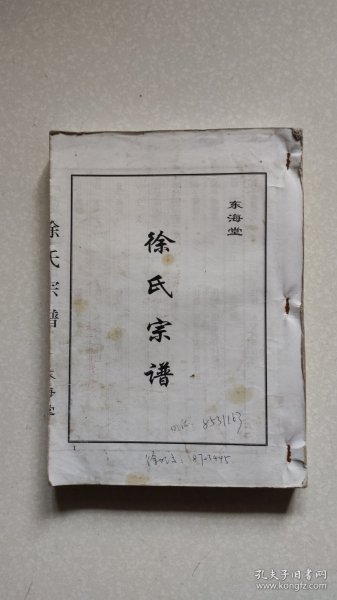 东海堂
徐氏宗谱
徐氏宗谱
东海堂
8531163
8723445
孔夫子旧书网
www.kongfz.com